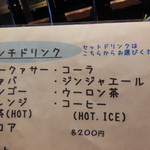 ンチドリンク
セットドリンクは
こちらからお選びくだ
ークァサー ・コーラ
バ ・ジンジャエール
ンゴー ・ウーロン茶
レンジ ・コーヒー
茶(HOT) (HOT.ICE)
コア
各200円